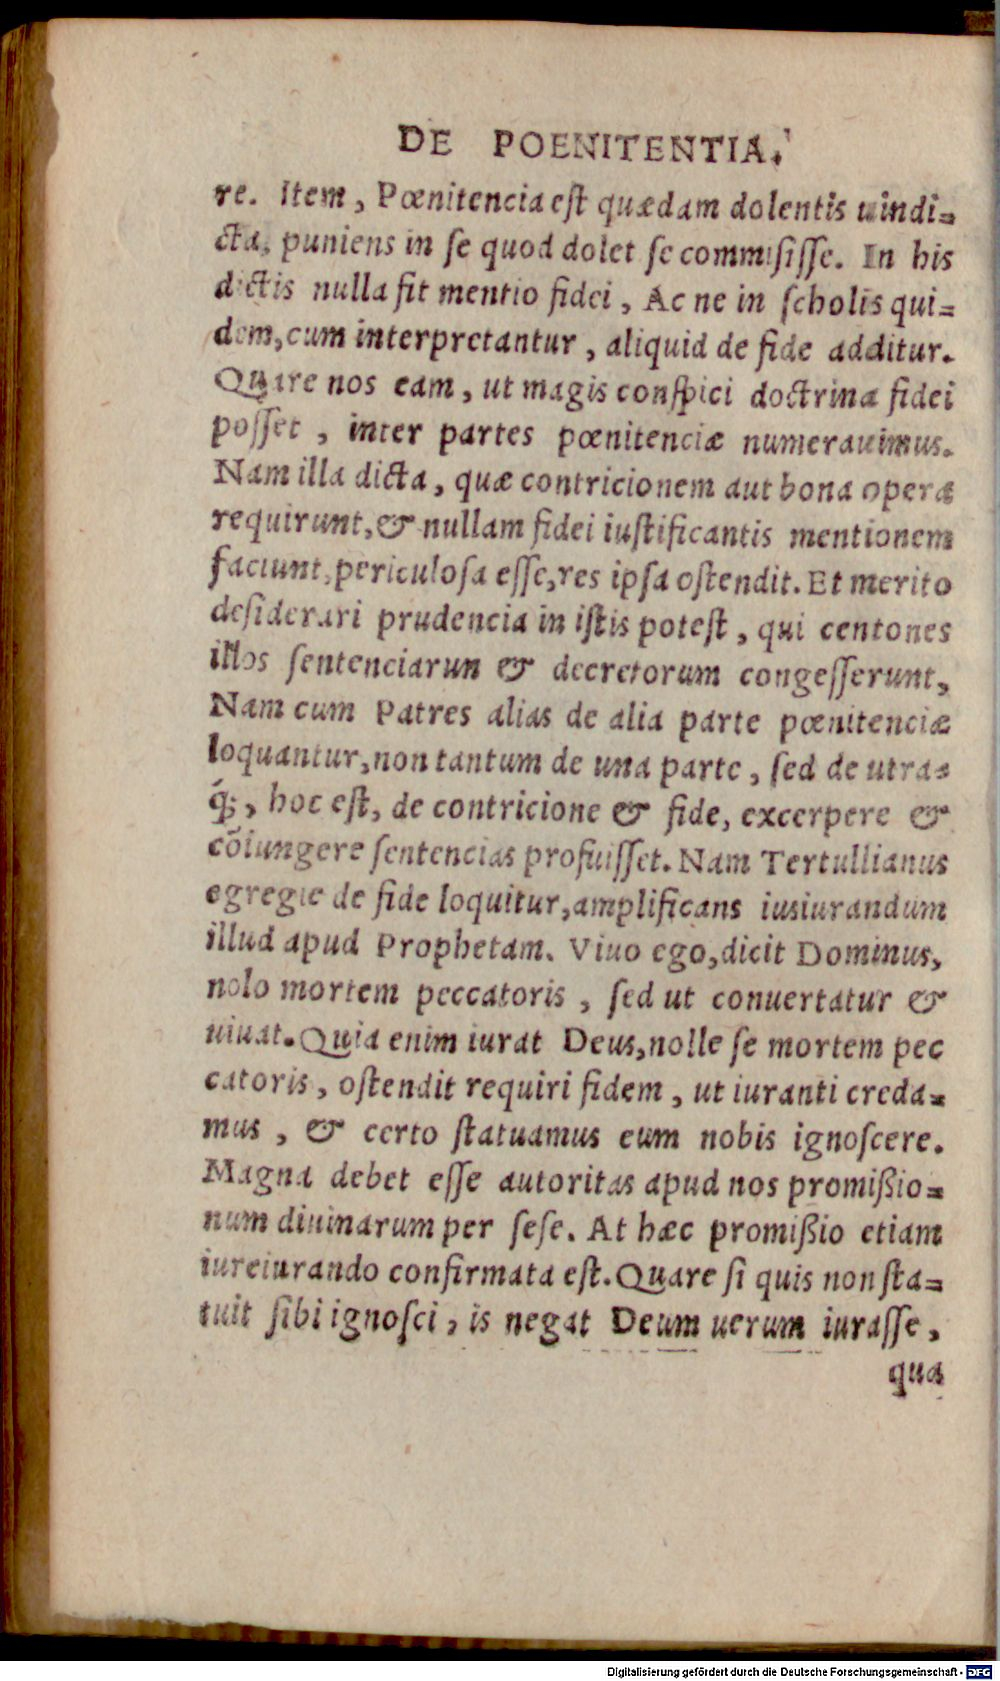 DE POENITENTIA.
re. Item, Pœnitencia est quædam dolentis uindi=
cta, puniens in se quod dolet se commisisse. In his
dictis nulla fit mentio fidei, Ac ne in scholis qui=
dem, cum interpretantur, aliquid de fide additur.
Quare nos eam, ut magis conspici doctrina fidei
posset, inter partes pœnitenciæ numerauimus.
Nam illa dicta, quæ contricionem aut bona opera
requirunt, & nullam fidei iustificantis mentionem
faciunt, periculosa esse, res ipsa ostendit. Et merito
desiderari prudencia in istis potest, qui centones
illos sentenciarun & decretorum congesserunt,
Nam cum Patres alias de alia parte pœnitenciæ
loquantur, non tantum de una parte, sed de utra=
q́;, hoc est, de contricione & fide, excerpere &
cōiungere sentencias profuisset. Nam Tertullianus
egregie de fide loquitur, amplificans iusiurandum
illud apud Prophetam. Viuo ego, dicit Dominus,
nolo mortem peccatoris, sed ut conuertatur &
uiuat. Quia enim iurat Deus, nolle se mortem pec
catoris, ostendit requiri fidem, ut iuranti creda=
mus, & certo statuamus eum nobis ignoscere.
Magna debet esse autoritas apud nos promißio=
num diuinarum per sese. At hæc promißio etiam
iureiurando confirmata est. Quare si quis non sta=
tuit sibi ignosci, is negat Deum uerum iurasse,
qua
Digitalisierung gefördert durch die Deutsche Forschungsgemeinschaft - DFG